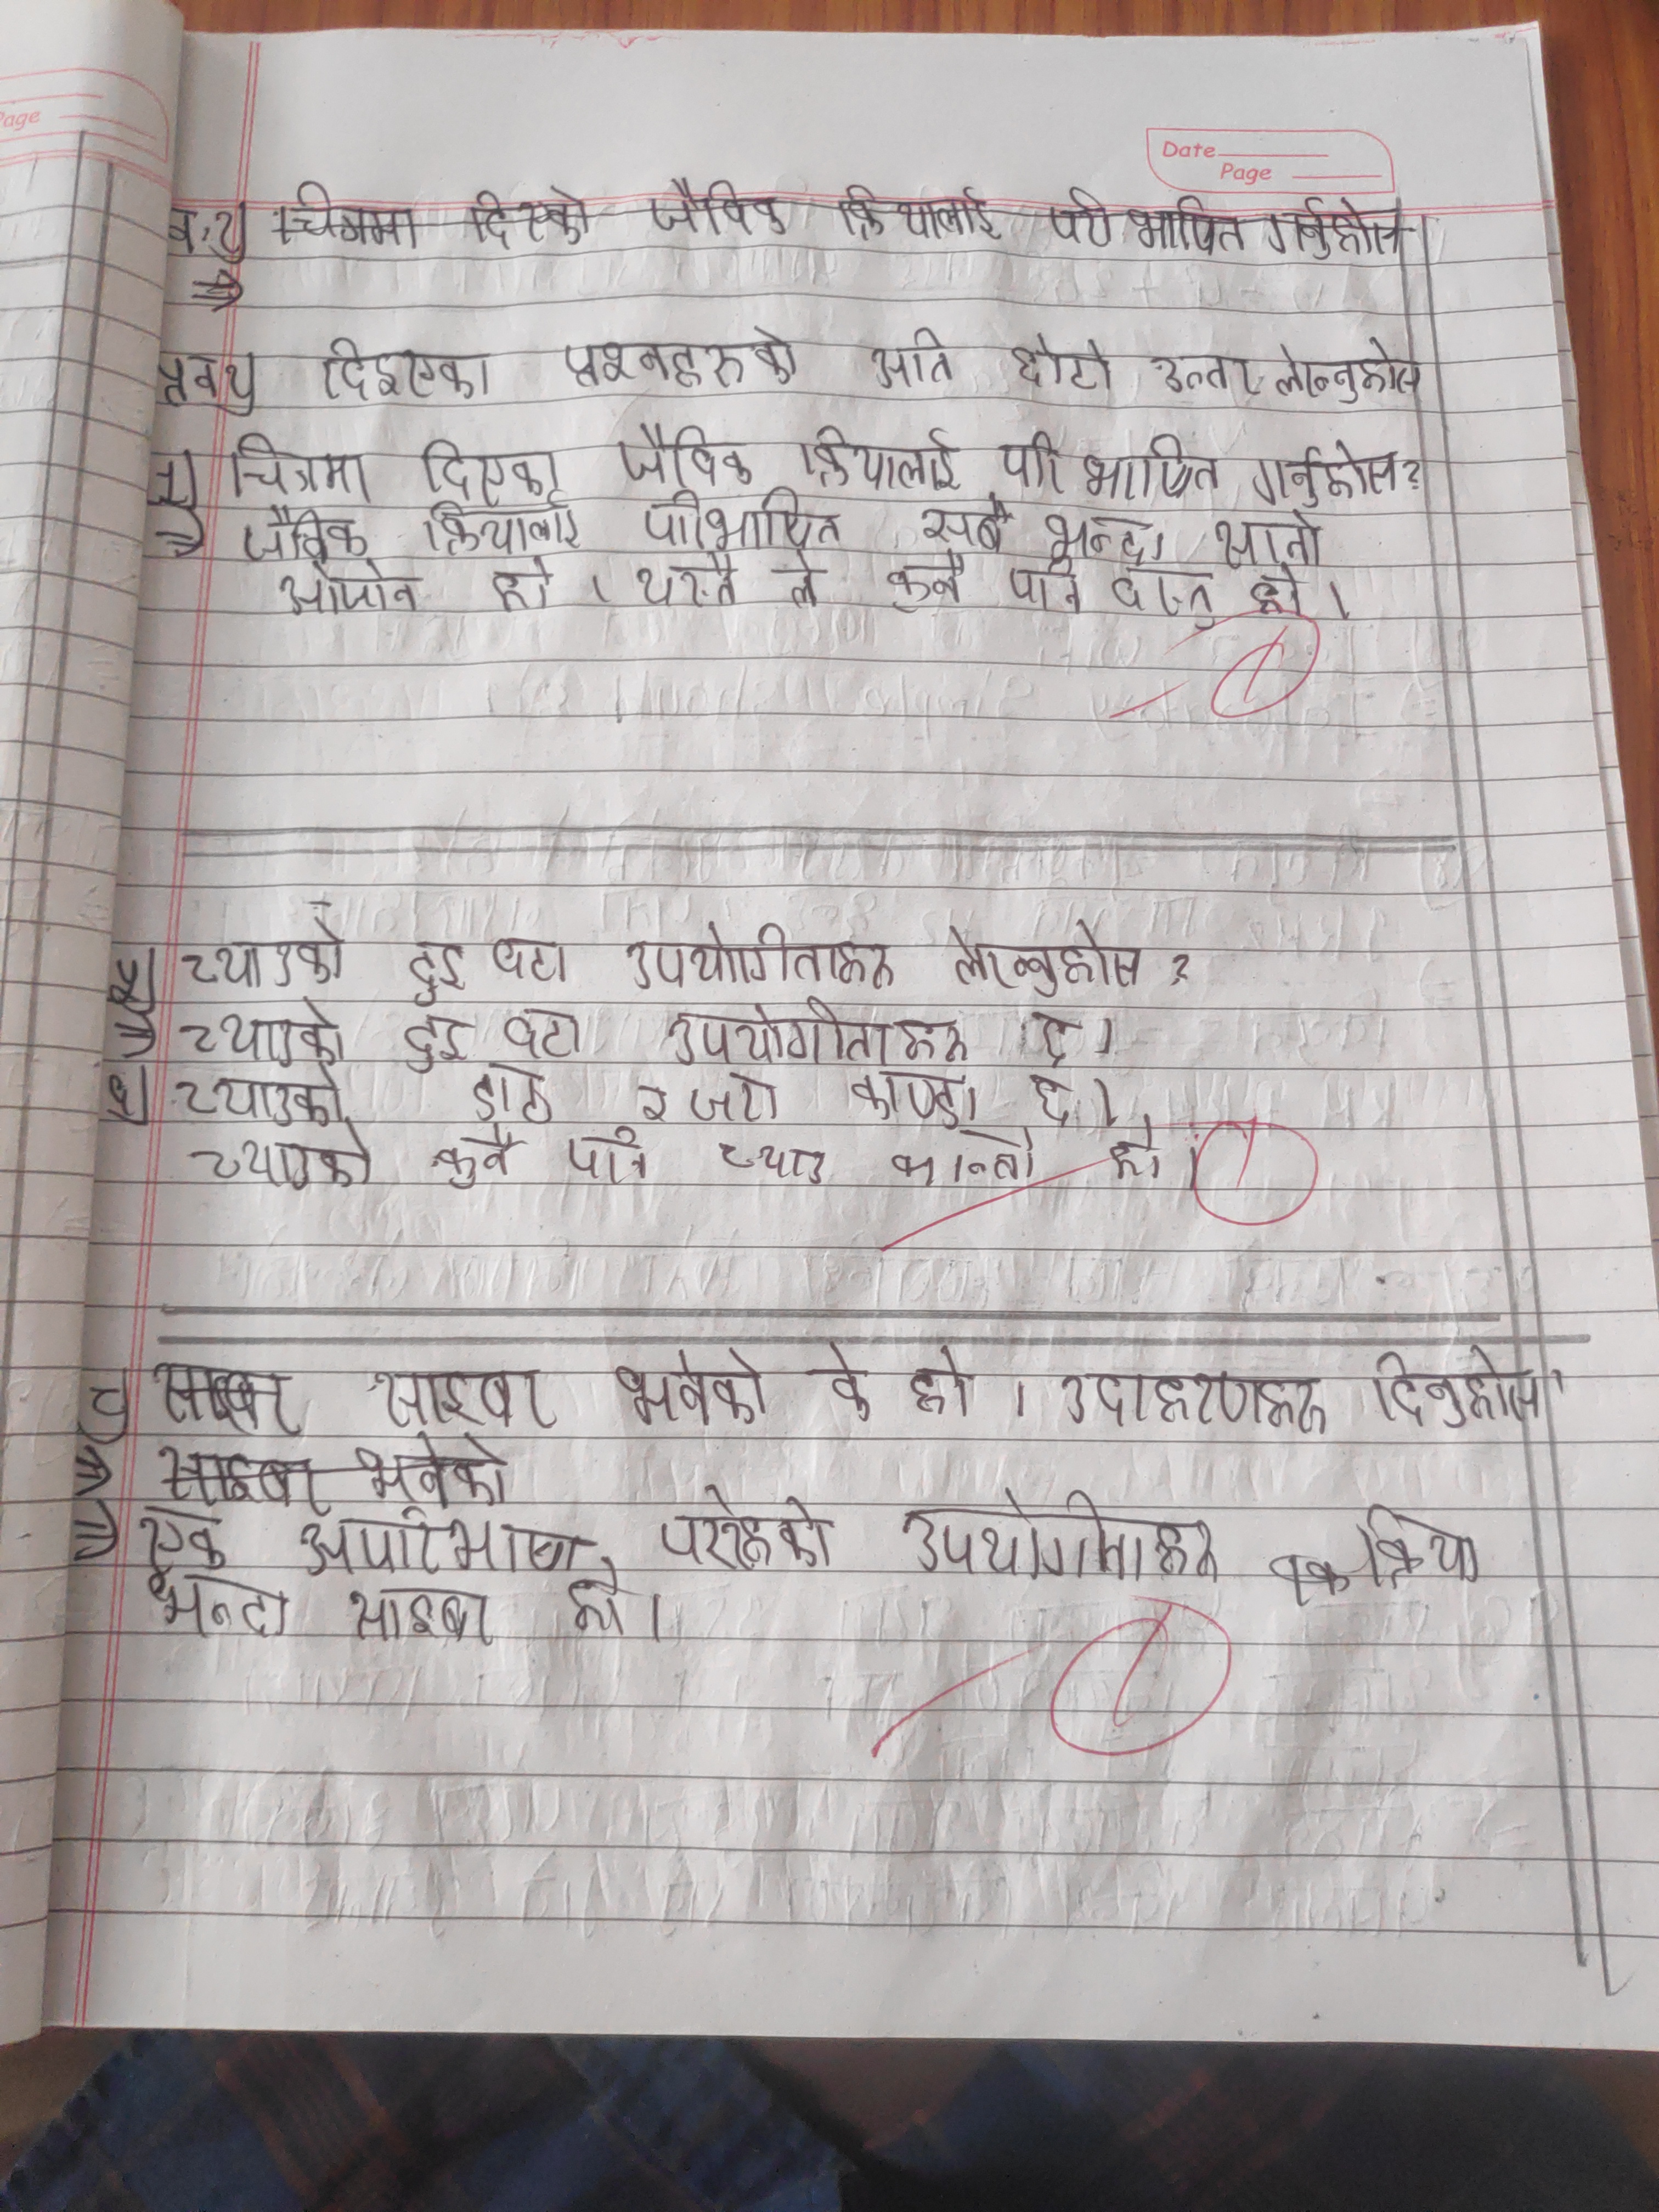 Page
Date
Page
चित्रमा दिएको जैविक क्रियालाई परीभाषित गर्नुहोस।
दिइएका प्रश्नहरुको अति छोटो उत्तर लेख्नुहोस
चित्रमा दिएका जैविक क्रियालाई परिभाषित गर्नुहोस?
जैविक क्रियालाई परिभाषित सबै भन्दा सानो
हो । यस्तै ले कुनै पनि वस्तु हो ।
1
च्याउको दुइ वटा उपयोगीताहरु लेख्नुहोस ?
च्याउको दुइ वटा उपयोगीताहरु छ ।
च्याउको डाठ र जरा काण्डा छ ।
च्याउको कुनै पनि च्याउ हो ।
1
साइबर भनेको के हो । उदाहरणहरु दिनुहोस।
साइबर भनेको
एक उपयोगीताहरु क्रिया
भन्दा साइबर हो ।
1